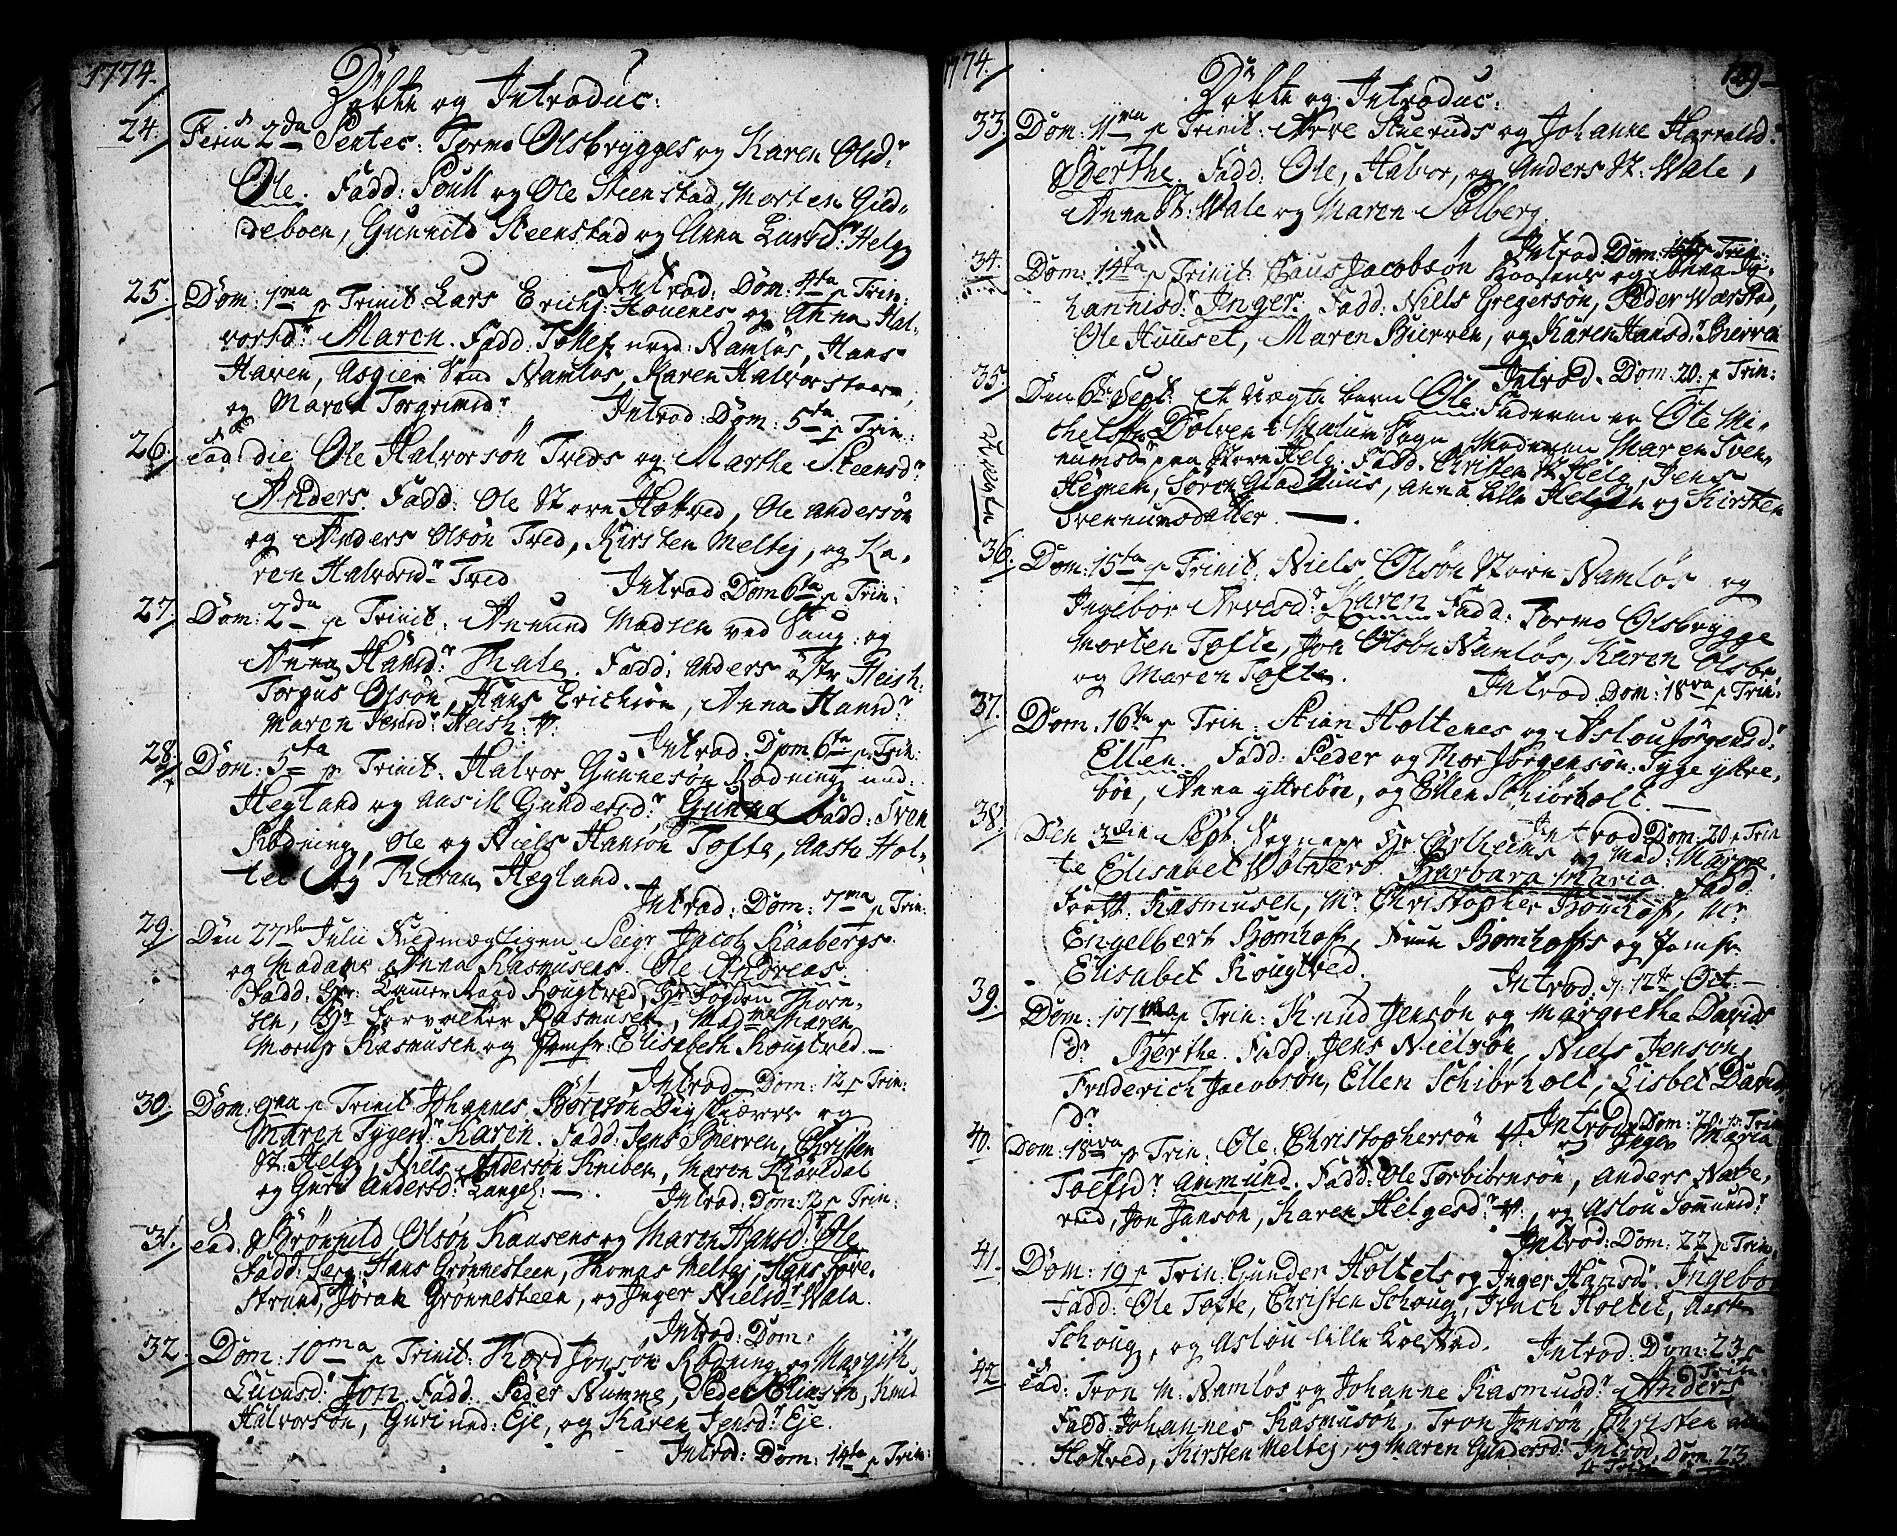 1774.
Døbte og Introduc:
24. Feria 2da Pentec: Tormo Olsbrygges og Karen Olsdr
Ole. Fadd: Poull og Ole Steenstad, Morten Gul-
deboen, Gunnild Steenstad og Anna Larsdr Helg
Introd: Dom: 4ta p Trin:
25. Dom: 1ma p Trinit Lars Erichs. Houenes og Anna Hal-
vorsdr Maren. Fadd: Tollef ned: Namløs, Hans
Haven, Asgier Sund Namløs, Karen Halvorstaar,
og Maren Torgrimsdr Introd: Dom: 5ta p Trin:
26. ead: die Ole Halvorsøn Treds og Marthe Steensdr
Anders. Fadd: Ole Store Høttved, Ole Andersøn
og Anders Olsøn Tred, Kirsten Meltej, og Ka-
ren Halvorsdr Tred Introd Dom 6ta p Trin:
27. Dom: 2da p Trinit: Amund Madsen ved Saug: og
Anna Hansdr Thale. Fadd: Anders østr Heish:
Torgus Olsøn, Hans Erichsøn, Anna Hansdr
Maren Jensdr Heish: v.
Introd. Dom. 6ta p Trin:
28. Dom: 5ta p Trinit: Halvor Gunnesøn Rødning ned:
Hegland og Aasill Gundersdr Gunne Fadd: Sven
Rødning, Ole og Niels Hansøn Tofte, Aaste Hol-
tet og Tharan Hegland.
Introd: Dom: 7ma p Trin:
29. Den 27de Julii Kiedmægligen Seigr Jacob Kaabergs
og Madame Anna Rasmusens. Ole Andreas
Fadd: Hr: Cammerraad Kougtved, Hr Told Thom-
sen, Hr Forvalter Rasmusen, Madme Maren
Morup Rasmusen og Jomfr: Elisabeth Kougtved.
Introd Dom: 12 p Trin:
30. Dom: 9na p Trinit Johannes Børresøn Digskierre og
Maren Tygesdr Karen. Fadd: Jens Bierven, Christen
St: Helg, Niels Andersøn Kniben, Maren Kaaredal
og Guri Andersdr Langel: Introd: Dom: 12 p Trin:
31. ead: Brønnild Olsøn Kaasens og Maren Hansdr Ole
Fadd: Serg: Hans Grønnesteen, Thomas Meltej, Hans Fore-
strand, Joran Grønnesteen, og Inger Nielsdr Wala.
Introd: Dom:
32. Dom: 10ma p Trinit: Thord Jonsøn Rødning og Margith
Lucasdr Jon. Fadd. Peder Numme, Peder Eliasøn, Knud
Halvorsøn, Guri ned: Eje, og Karen Jensdr Eje.
Introd: Dom: 14ta p Trin:
1774. 129
Døbte og Introduc:
33. Dom: 11ma p Trinit: Arve Stueruds og Johanne Haraldsdr
Berthe. Fadd: Ole, Halvor, og Anders St: Wale,
Anna St: Wale og Maren Solberg.
Introd Dom: Trin:
34. Dom: 14ta p Trinit: Claus Jacobsøn Kaasens og Anna Jo-
hannisdr Inger. Fadd: Niels Gregersøn, Peder Værstad,
Ole Huuset, Maren Bierven, og Karen Hansdr Bierven
Introd. Dom: 20: p Trin:
35. Den 6te Sept: et Uægte barn Ole. Faderen er Ole Mi-
chelsøn Dolven i Solum Sogn, Moderen Maren Sven-
numsdr paa Store Helg. Fadd. Christen St Helg, Jens
Hejnem, Søren Gladhuus, Anna Lille Helgen og Kirsten
Svennumsdatter.
Uægte
36. Dom: 15ta p Trinit: Niels Olsøn Store Namløs og
Ingebor Arvesdr Karen Fadd: Tormo Olsbrygge
Morten Tofte, Jon Olsøn Namløs, Karen Olsbr,
og Maren Tofte. Introd. Dom: 18va p Trin:
37. Dom: 16ta p Trin: Stian Holtenes og Aslou Jørgensdr
Ellen. Fadd: Peder og Thor Jørgensøn: Tyge ytre-
bøe, Anna ytterbøe, og Ellen Schiørholt.
Introd Dom: 20 p Trin
38. Den 3die Sept. Hr Carl og Mad: Margre-
te Elisabet Wolters. Barbara Maria Fadd
Rasmusen, Mr Christopher Bomhoff, Mr
Engelbert Bomhoff, Frue Bomhoffs og Jomfr
Elisabet Kougtved. Introd. d. 12te Oct.
39. Dom: 17ma p Trin: Knud Jensøn og Margrethe Davids
dr Berthe. Fadd: Jens Nielsøn, Niels Jensøn,
Friderich Jacobsøn, Ellen Schiørholt, Lisbet Davids
dr Introd: Dom: 20 p Trin
40. Dom: 18va p Trin: Ole Christophersøn og Inger Maria
Toefsdr Anmund. Fadd: Ole Torbiørnsøn, Anders Nabe-
reid, Jon Jansøn, Karen Helgesdr v, og Aslou Somundr
Introd: Dom: 22 p Trin:
41. Dom: 19 p Trin: Gunder Holtets og Inger Hansdr Ingebor
Fadd: Ole Tofte, Christen Schoug, Erich Holtet, Aaste
Schoug, og Aslou lille Koested. Introd: Dom: 23 p
Trin.
42. ead: Tron M: Namløs og Johanne Rasmusdr Anders
Fadd: Johannes Rasmusøn, Tron Jonsøn, Christen
Høttved, Kirsten Meltej, og Maren Gundersdr Introd. Dom: 23
p Trin